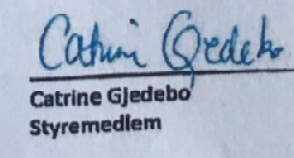 Catrine Gjedebo
Catrine Gjedebo
Styremedlem